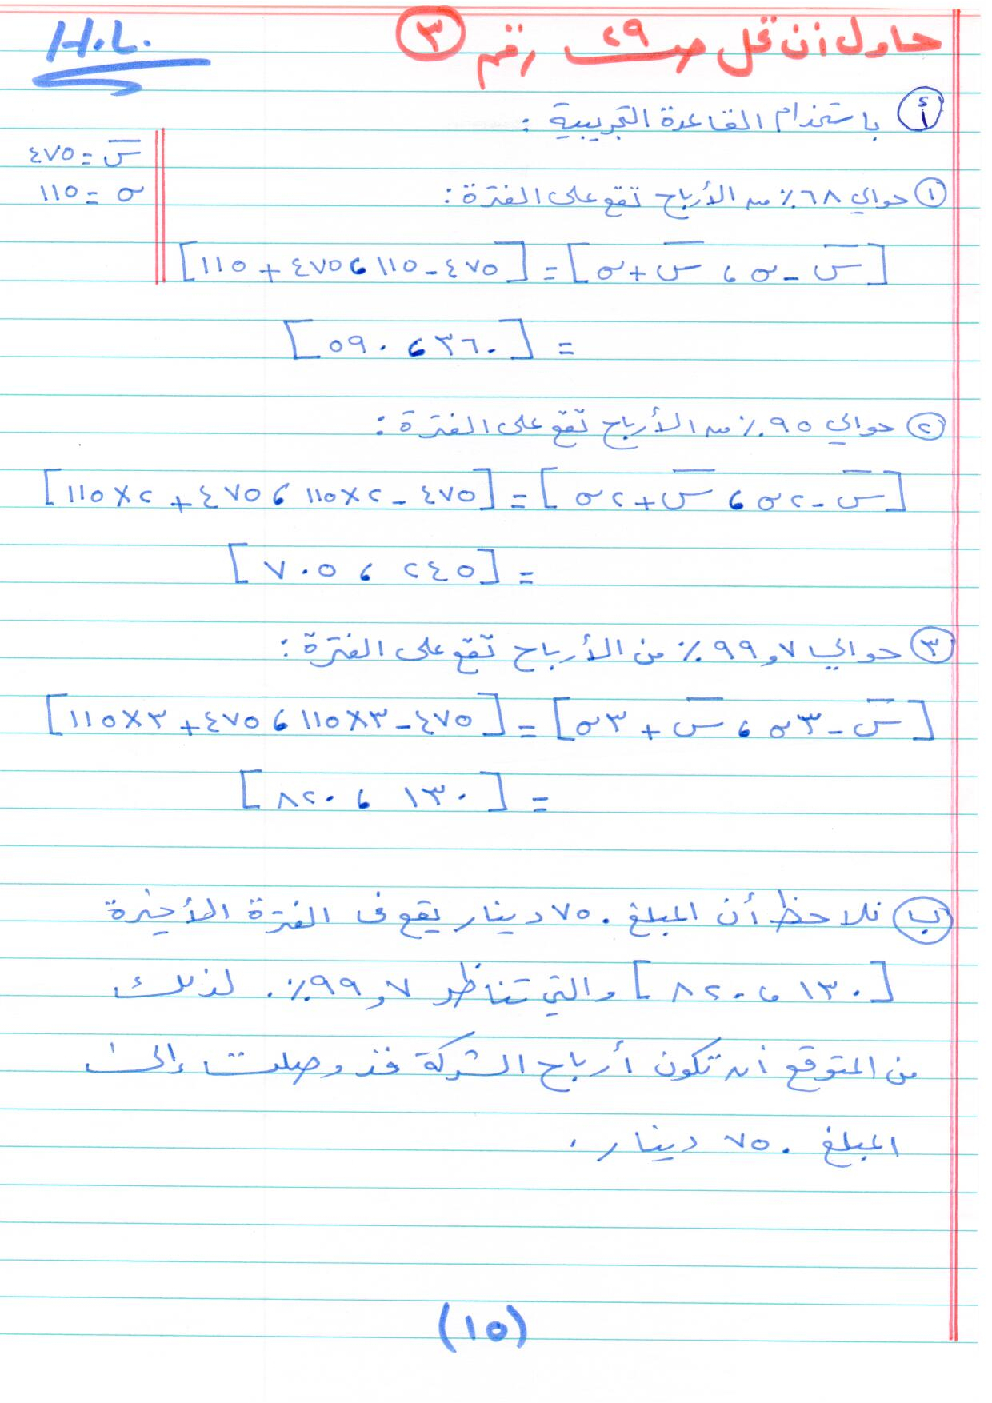 H.L.
حاول أن تحل صـ ٢٩ رقم (٣)
أ باستخدام القاعدة التجريبية :
س̄ = ٤٧٥
σ = ١١٥
(١) حوالي ٦٨٪ من الأرباح تقع على الفترة :
[س̄ - σ ، س̄ + σ] = [٤٧٥ - ١١٥ ، ٤٧٥ + ١١٥]
= [٣٦٠ ، ٥٩٠]
(٢) حوالي ٩٥٪ من الأرباح تقع على الفترة :
[س̄ - ٢σ ، س̄ + ٢σ] = [٤٧٥ - ٢×١١٥ ، ٤٧٥ + ٢×١١٥]
= [٢٤٥ ، ٧٠٥]
(٣) حوالي ٩٩,٧٪ من الأرباح تقع على الفترة :
[س̄ - ٣σ ، س̄ + ٣σ] = [٤٧٥ - ٣×١١٥ ، ٤٧٥ + ٣×١١٥]
= [١٣٠ ، ٨٢٠]
ب نلاحظ أن المبلغ ٧٥٠ دينار يقع في الفترة الأخيرة
[١٣٠ ، ٨٢٠] والتي تناظر ٩٩,٧٪. لذلك
من المتوقع أن تكون أرباح الشركة قد وصلت إلى
المبلغ ٧٥٠ دينار .
(١٥)